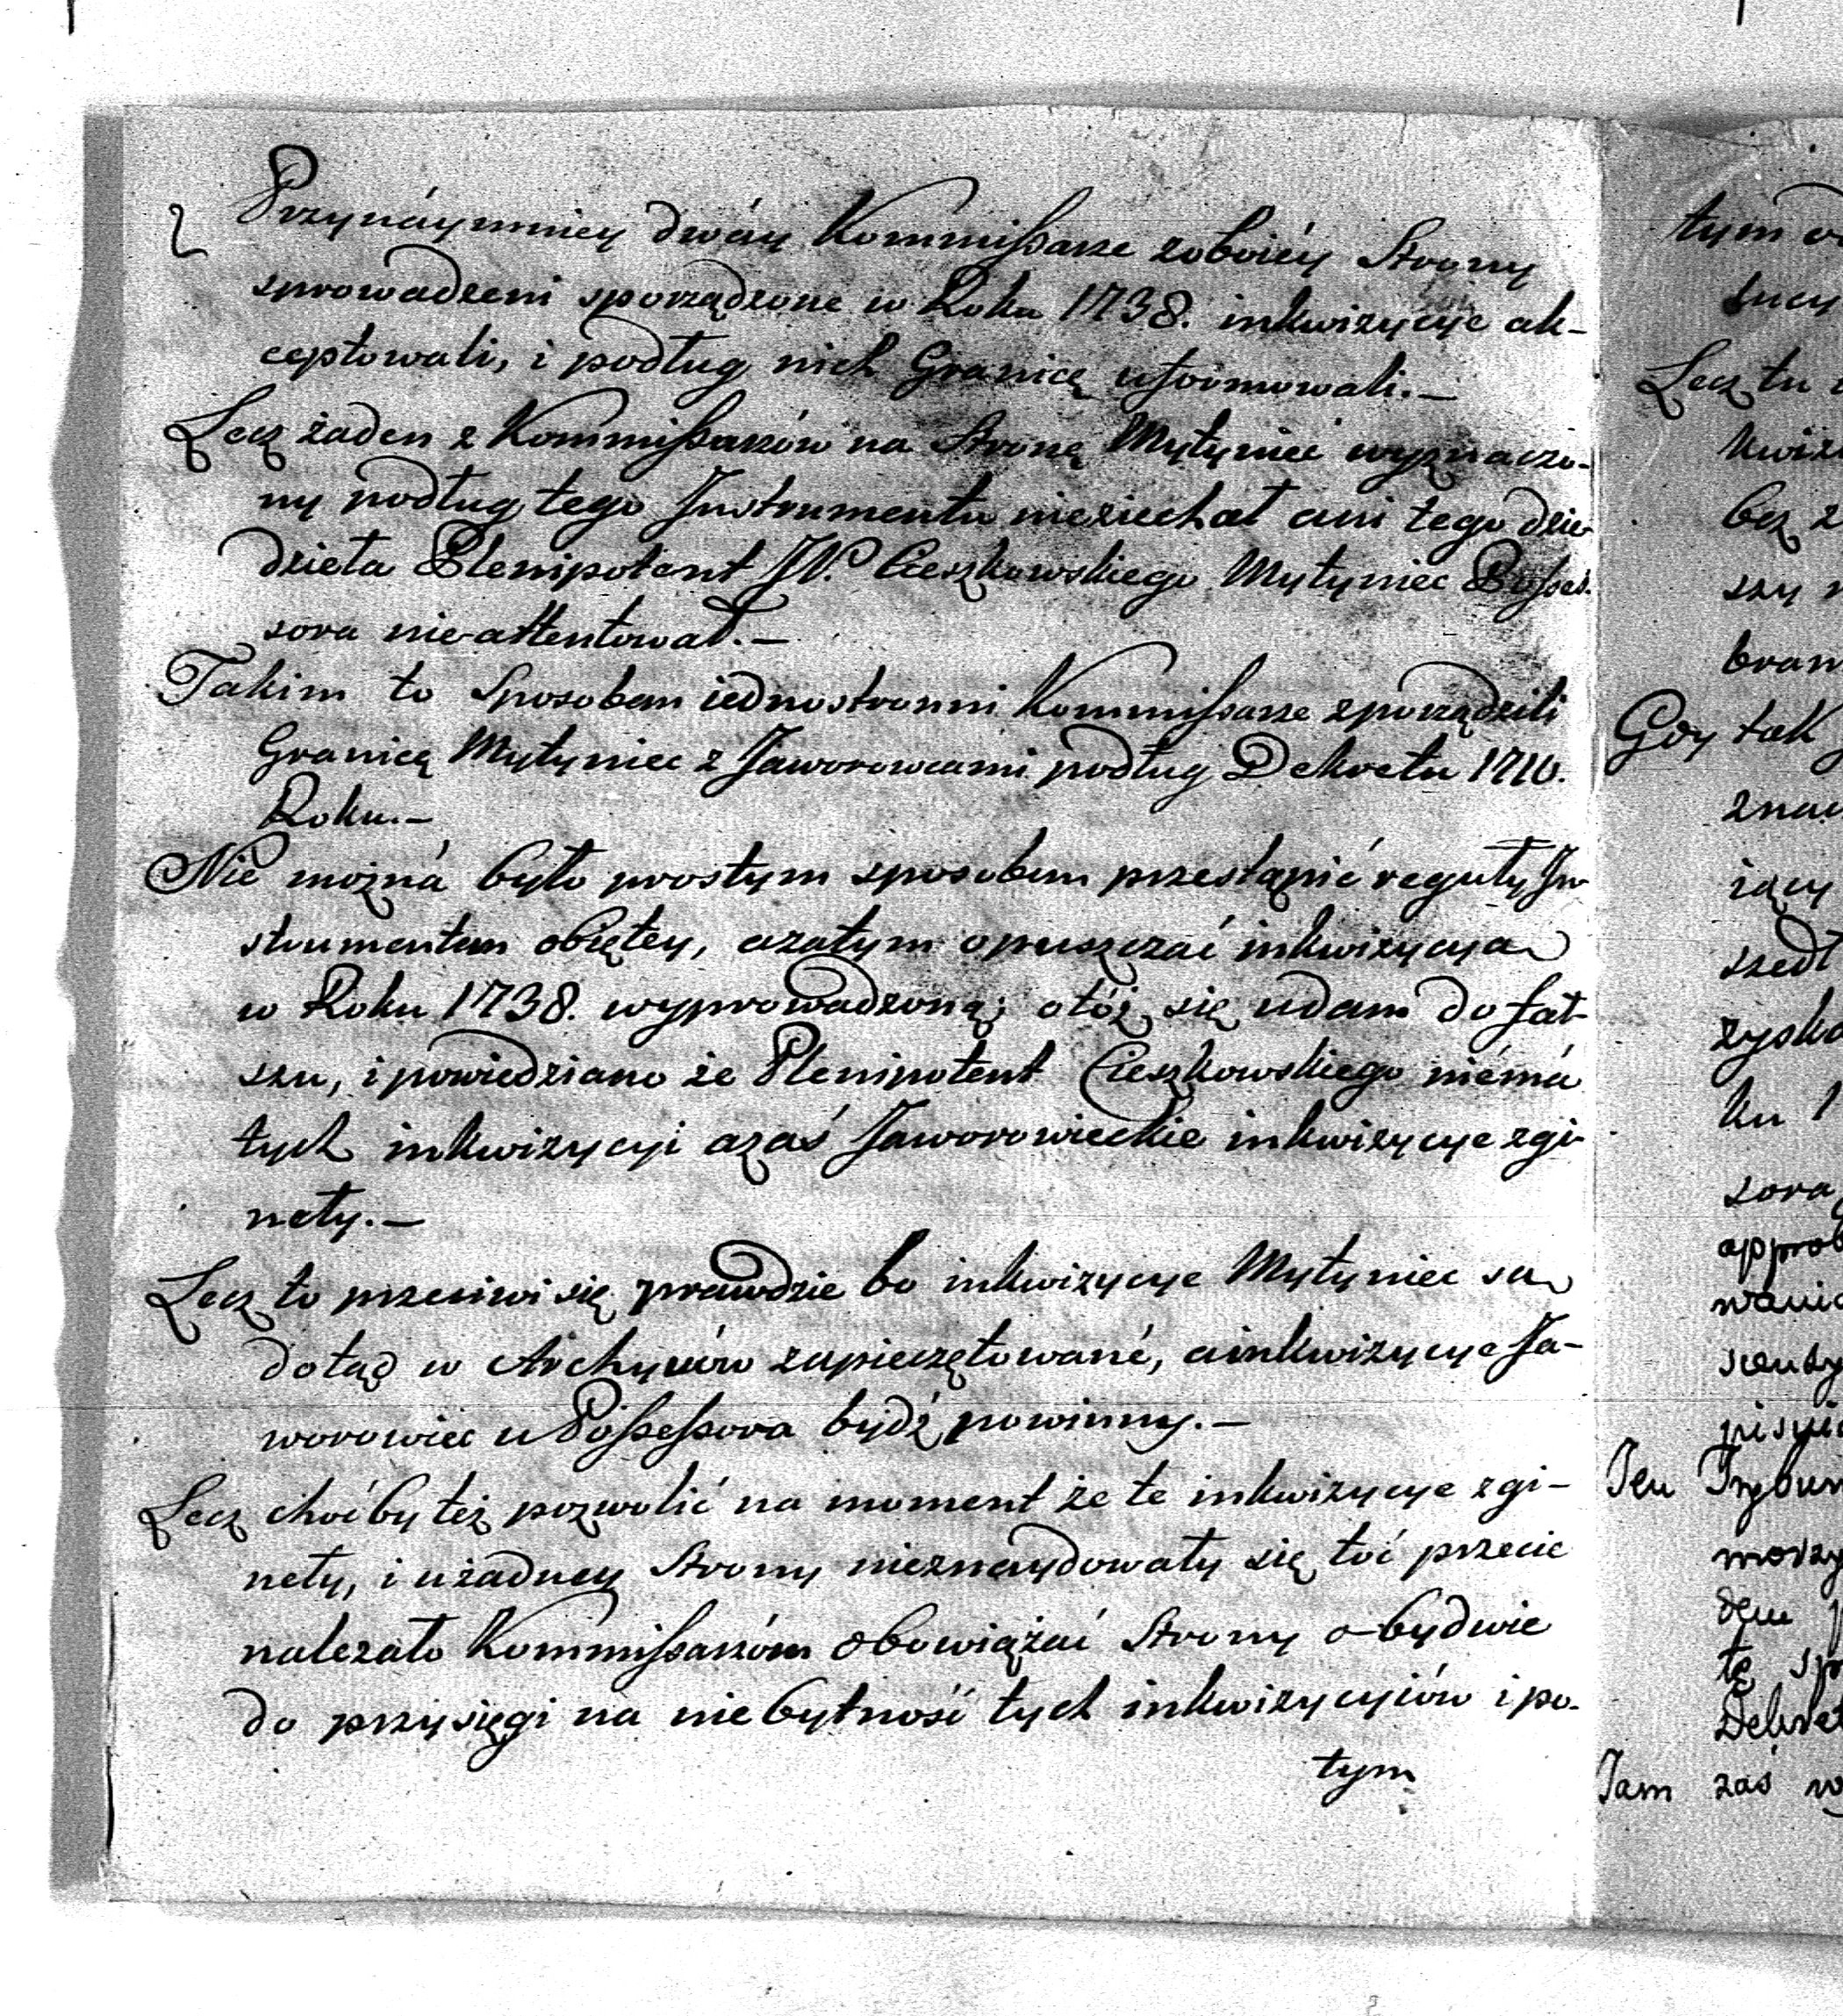 Przynáymniey dwáy Kommißarze zoboiéy Strony
sprowadzeni sporządzone w Roku 1738. inkwizycye ak-
ceptowali, i podług nich Granicę uformowali.—
Lecz żaden z Kommißarzów na Stronę Mytyniec wyznaczo-
ny podług tego Instrumentu nieziechał ani tego dzie-
dzieła Plenipotent JW. Cieszkowskiego Mytyniec Poßes-
sora nie attentował.—
Takim to Sposobem iednostronni Kommißarze zporządzili
Granicę Mytyniec z Jaworowcami podług Dekretu 1710.
Roku.—
Nie możná było prostym sposobem przestąpić reguły In-
strumentem obiętey, azatym opuszczać inkwizycya
w Roku 1738. wyprowadzoną; otóż się udam do fał-
szu, i powiedziano że Plenipotent Cieszkowskiego niémá
tych inkwizycyi azaś Jaworowieckie inkwizycye zgi-
neły.—
Lecz to przeciwi się prawdzie bo inkwizycye Mytyniec sa
dotąd w Archywów zapieczętowané, ainkwizycye Ja-
worowiec u Poßeßora bydź powinny.—
Lecz choćby też pozwolić na moment że te inkwizycye zgi-
neły, i użadney Strony nieznaydowały się toć przecie
należało Kommißarzóm obowiązać Strony obydwie
do przysięgi na niebytność tych inkwizycyiów i po-
tym
tym
Lecz tu
bez
szy
bram
Gdy tak
szedł
ku 1
sora
Ten
tę
Tam zaś